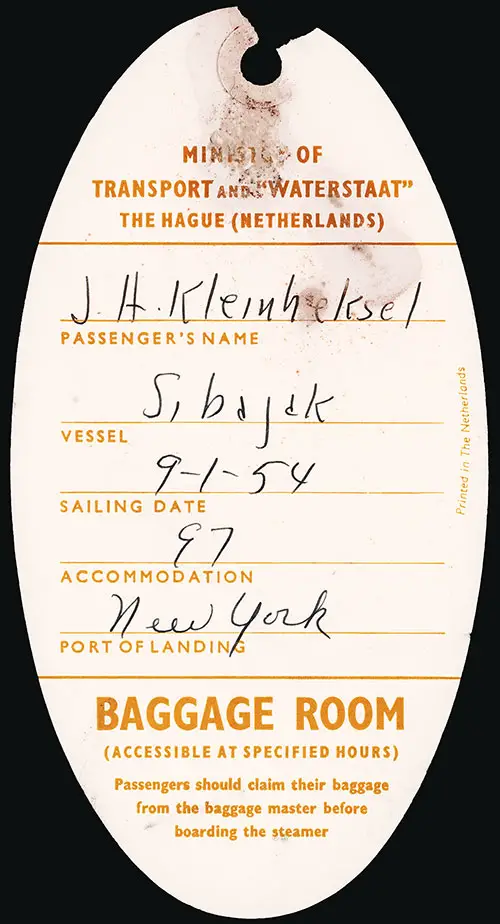 MINISTRY OF
TRANSPORT AND "WATERSTAAT"
THE HAGUE (NETHERLANDS)
J. H. Kleinheksel
PASSENGER'S NAME
Sibajak
VESSEL
9-1-54
SAILING DATE
97
ACCOMMODATION
New York
PORT OF LANDING
Printed in The Netherlands
BAGGAGE ROOM
(ACCESSIBLE AT SPECIFIED HOURS)
Passengers should claim their baggage
from the baggage master before
boarding the steamer